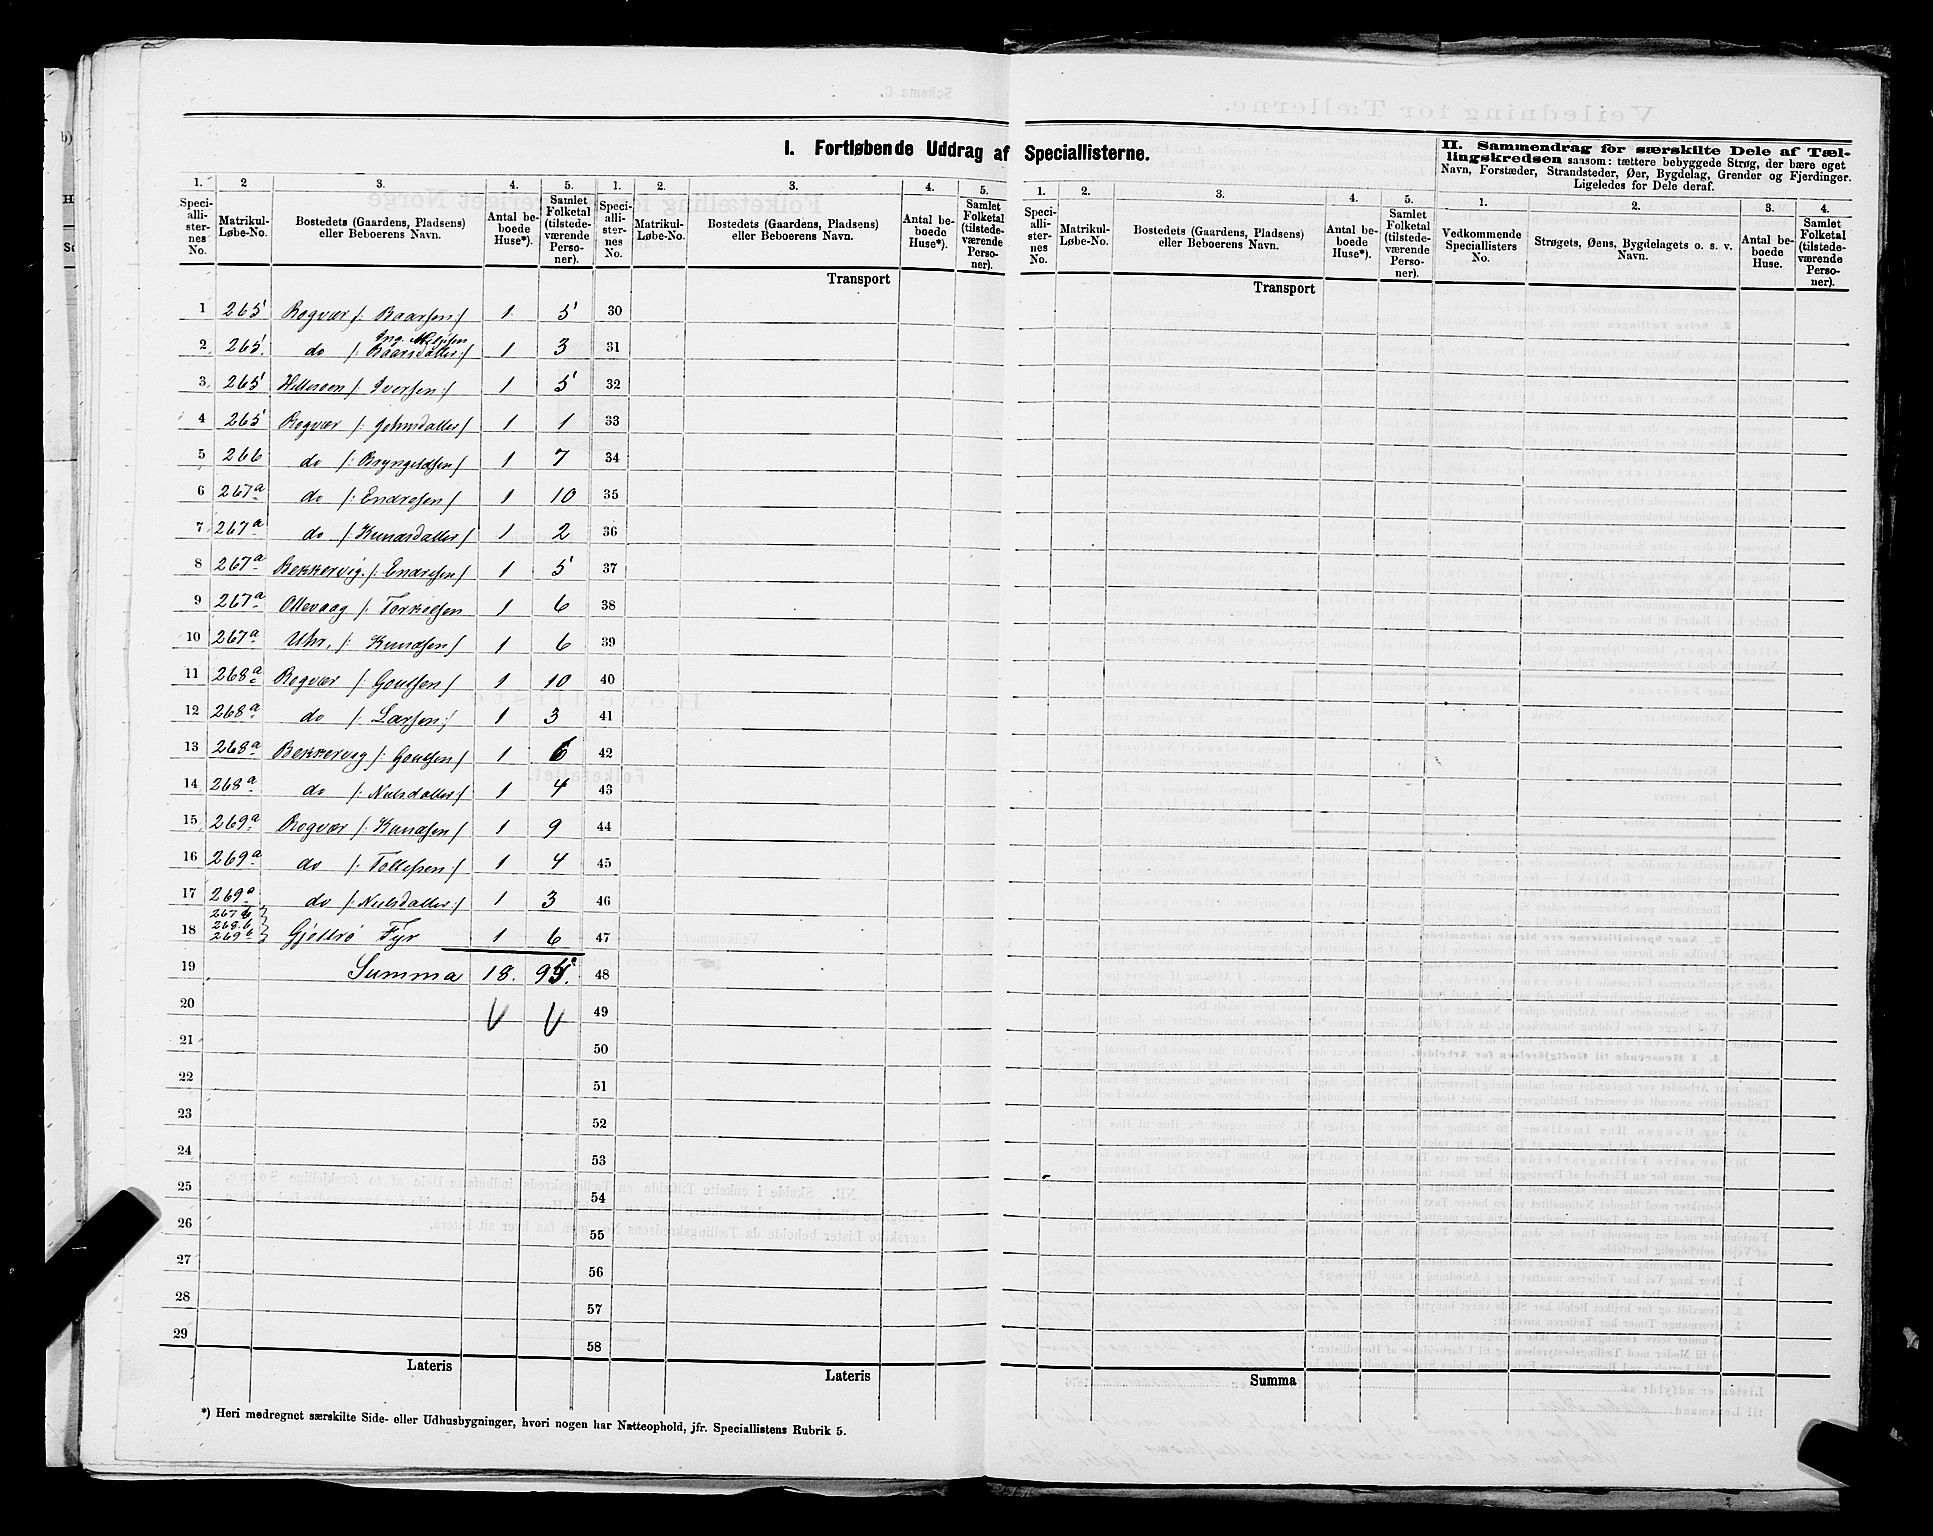 I. Fortløbende Uddrag af Speciallisterne.
II. Sammendrag for særskilte Dele af Tællingskredsen saasom: tættere bebyggede Strøg, der bære eget
Navn, Forstæder, Strandsteder, Øer, Bygdelag, Grender og Fjerdinger.
Ligeledes for Dele deraf.
1. 2 3. 4. 5. 1. 2. 3. 4. 5. 1. 2. 3. 4. 5. 1. 2. 3. 4.
Speciallisternes No. Matrikul-Løbe-No. Bostedets (Gaardens, Pladsens) eller Beboerens Navn. Antal beboede Huse*). Samlet Folketal (tilstedeværende Personer).
Speciallisternes No. Matrikul-Løbe-No. Bostedets (Gaardens, Pladsens) eller Beboerens Navn. Antal beboede Huse*). Samlet Folketal (tilstedeværende Personer).
Speciallisternes No. Matrikul-Løbe-No. Bostedets (Gaardens, Pladsens) eller Beboerens Navn. Antal beboede Huse*). Samlet Folketal (tilstedeværende Personer).
Vedkommende Speciallisters No. Strøgets, Øens, Bygdelagets o. s. v. Navn. Antal beboede Huse. Samlet Folketal (tilstedeværende Personer).
Transport Transport
1 265 Rogvær /: Baarsen :/ 1 5 30
2 265. do /: Baarsdatter :/ 1 3 31
3 265 Hellesøen /: Iversen :/ 1 5 32
4 265 Rogvær /: Johnsdatter / 1 1 33
5 266 do /: Bryngeldsen / 1 7 34
6 267a do /: Endresen / 1 10 35
7 267a do /: Knudsdatter / 1 2 36
8 267a Bekkervig. /: Endresen / 1 5 37
9 267a Ottevaag /: Torkelsen 1 6 38
10 267a Uhr, /: Knudsen / 1 6 39
11 268a Rogvær /: Goutsen / 1 10 40
12 268a do /: Larsen :/ 1 3 41
13 268a Bekkervig /: Goutsen / 1 6 42
14 268a do /: Nielsdatter :/ 1 4 43
15 269a Rogvær /: Knudsen / 1 9 44
16 269a do /: Tollefsen :/ 1 4 45
17 269a do /: Nielsdatter :/ 1 3 46
18 267b 268.b 269b } Gjeterø Fyr 1 6 47
19 Summa 18. 95. 48
20 49
21 50
22 51
23 52
24 53
25 54
26 55
27 56
28 57
29 58
Lateris Lateris Summa
*) Heri medregnet særskilte Side- eller Udhusbygninger, hvori nogen har Natteophold, jfr. Speciallistens Rubrik 5.